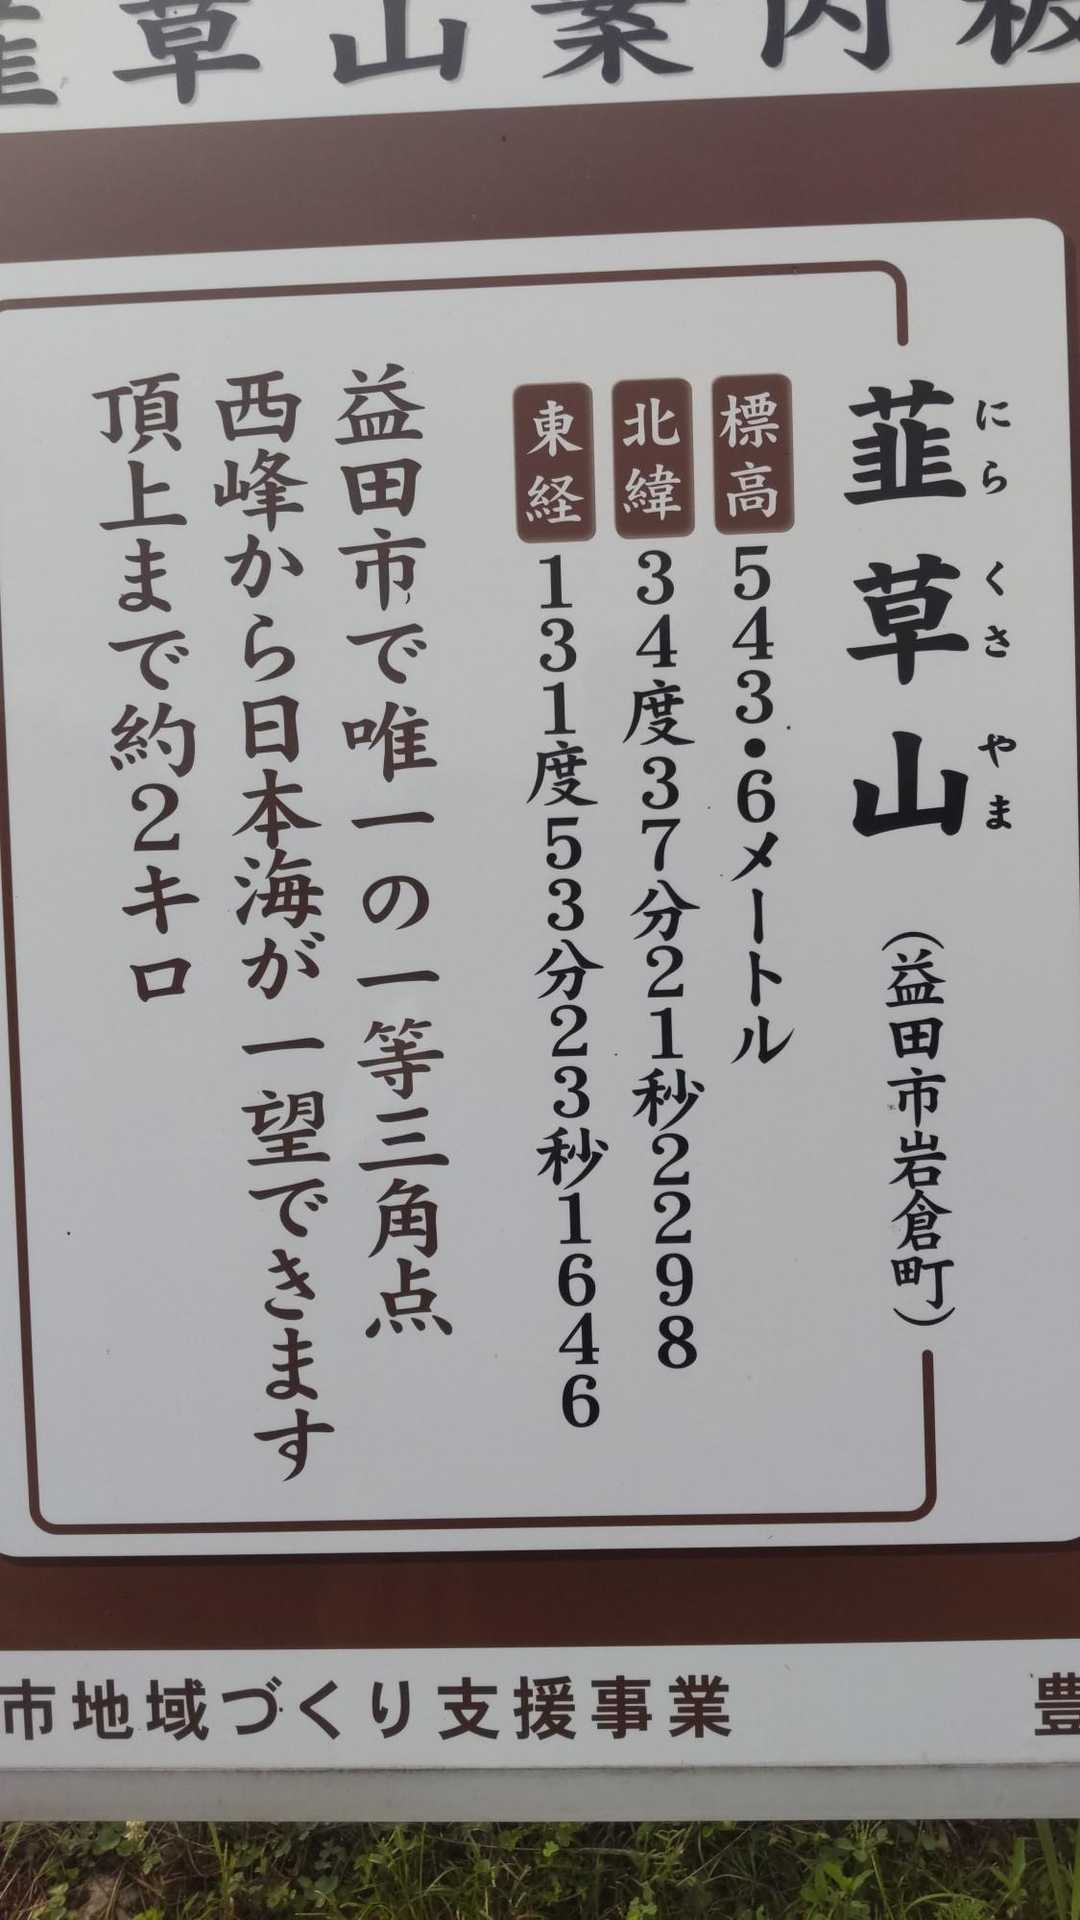 韮草山案内板
韮草山（益田市岩倉町）
にらくさやま
標高 543・6メートル
北緯 34度37分21秒2298
東経 131度53分23秒1646
益田市で唯一の一等三角点
西峰から日本海が一望できます
頂上まで約2キロ
市地域づくり支援事業
豊